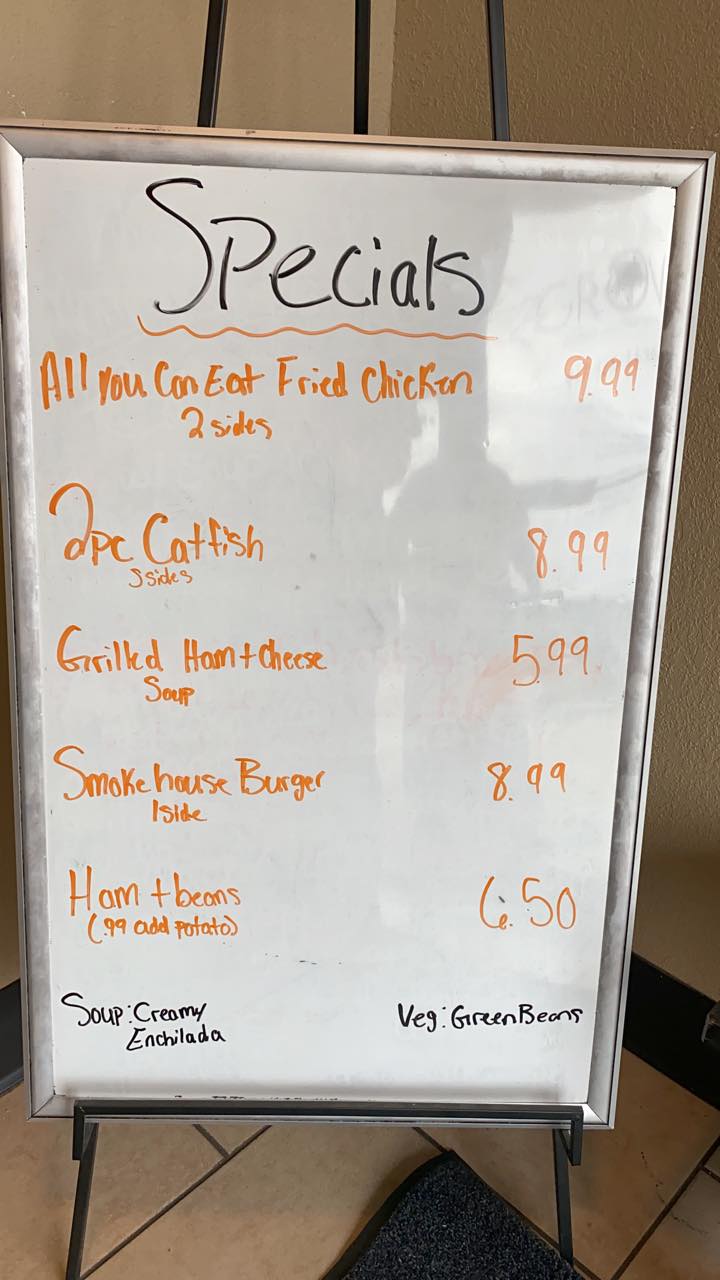 Specials
All you Can Eat Fried Chicken 9.99
2 sides
2pc Catfish 8.99
3 sides
Grilled Ham + Cheese 5.99
Soup
Smokehouse Burger 8.99
1 side
Ham + beans 6.50
(.99 add potato)
Soup: Creamy Enchilada
Veg: Green Beans